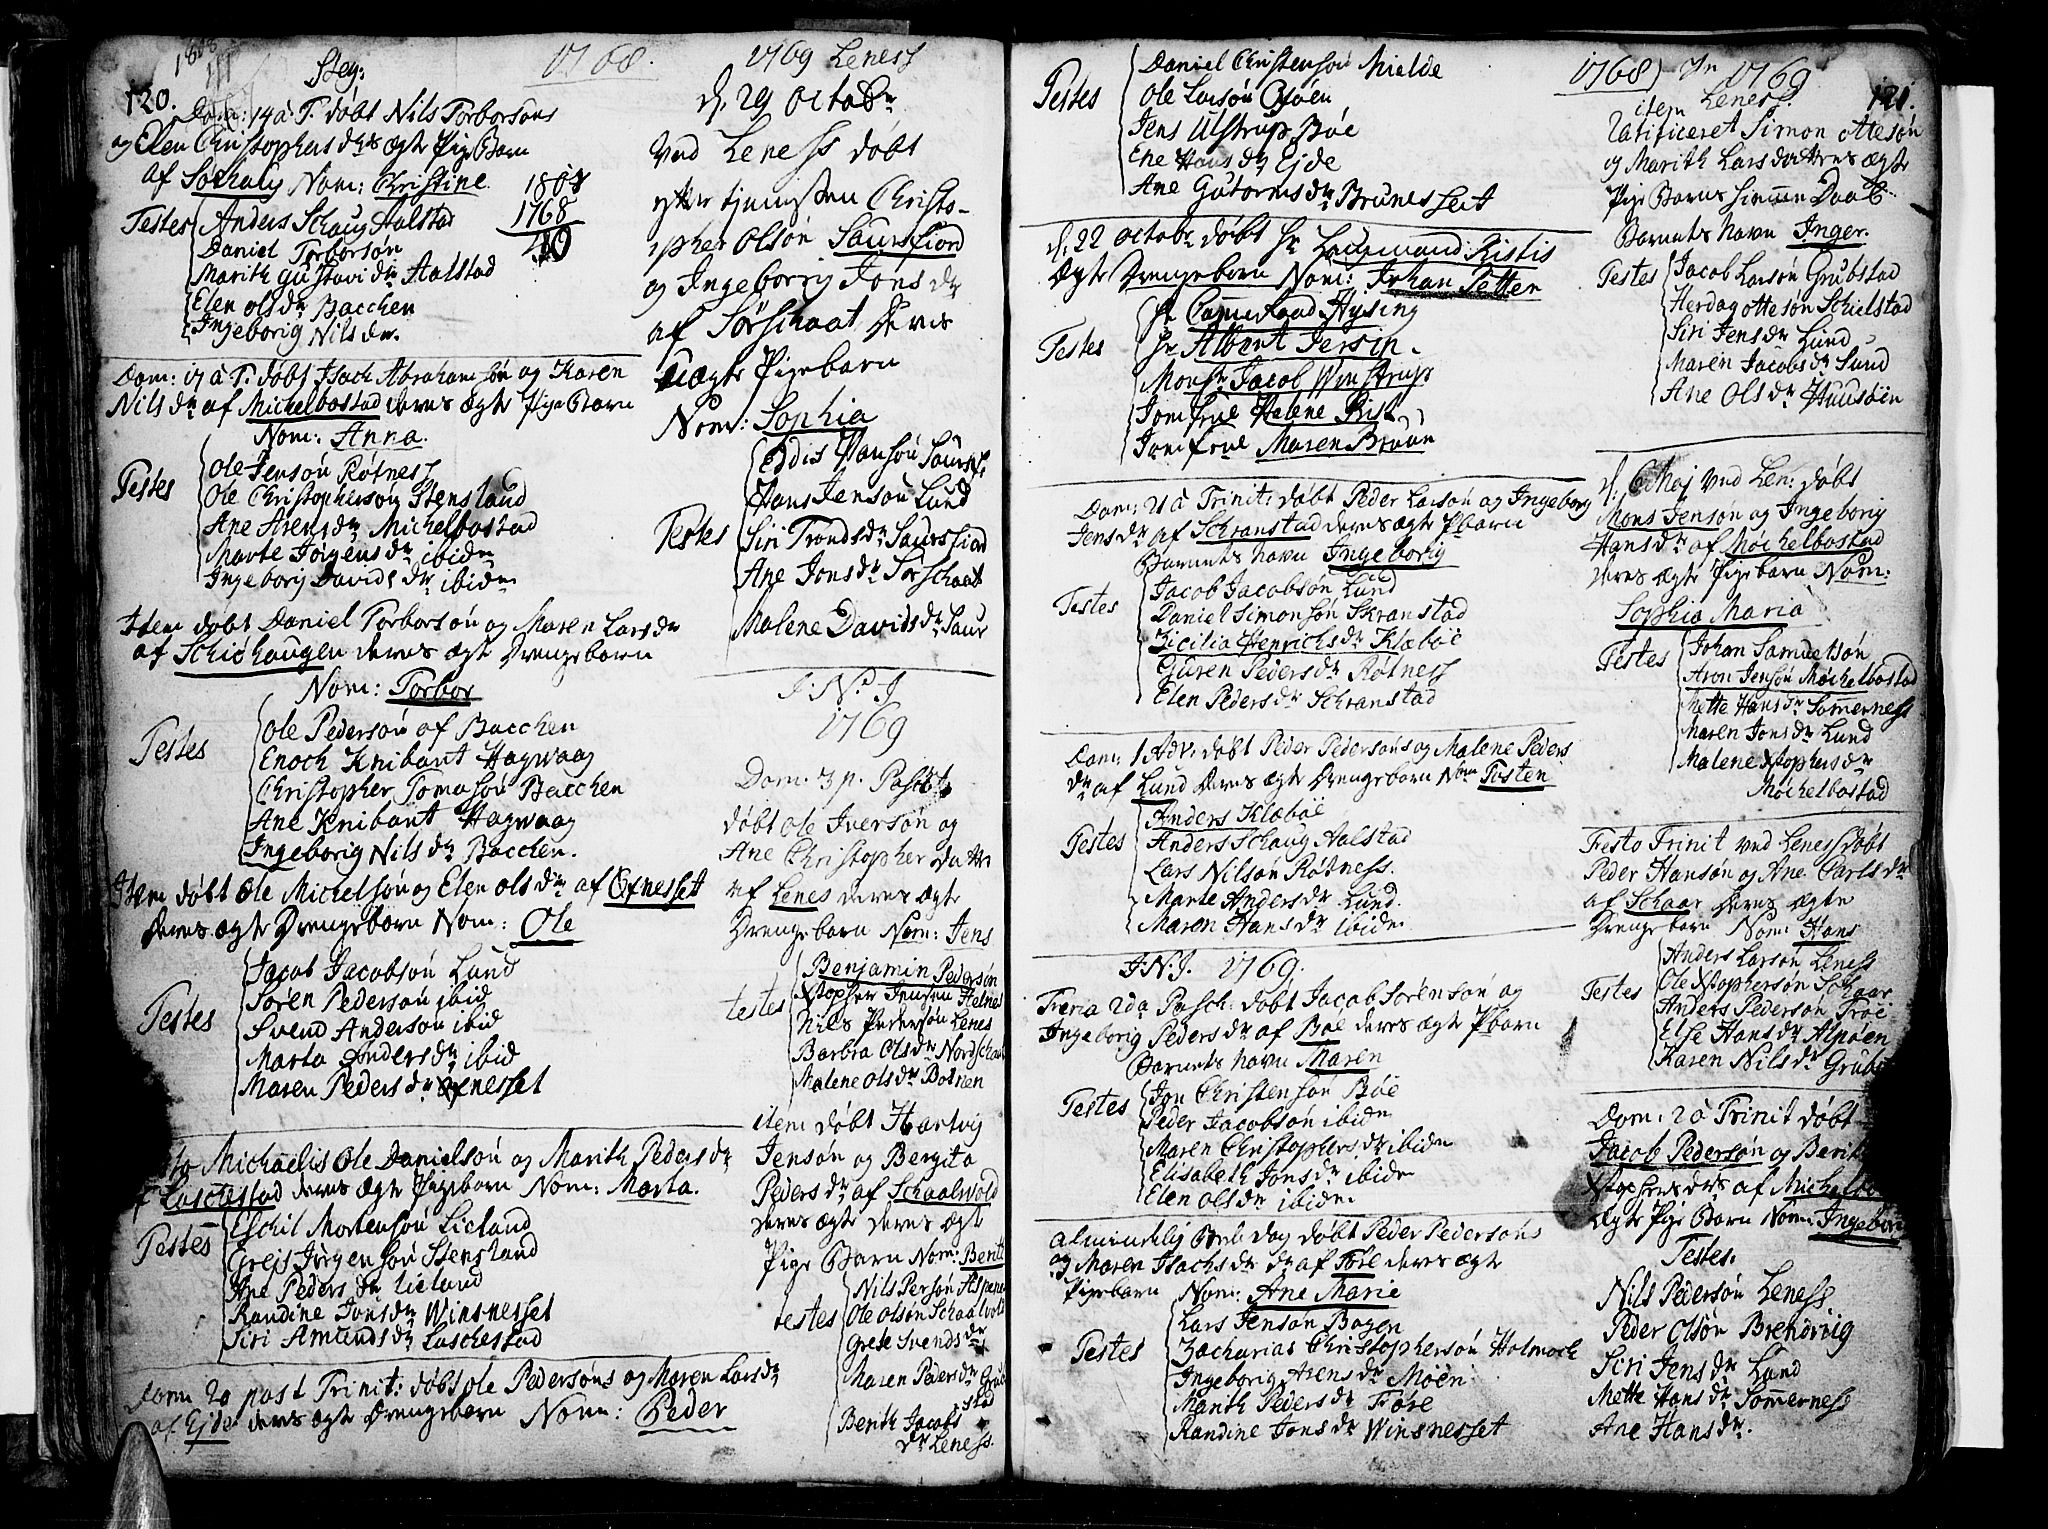 120.
Steg:
1768.
Dom: 14 à T. døbt Nils Torborsøns
og Elen Christophers drs ægte Pige Barn
af Nom: Christine
1808
1768
40
Testes
Anders Schaug Aalstad
Daniel Torborsøn
Marith Gustavi dr Aalstad
Elen Ols dr Bacchen
Ingeborig Nils dr.
Dom: 17 à T. døbt Isach Abrahamsøn og Karen
Nils dr af Michelbostad deres ægte Pige Barn
Nom: Anna.
Testes
Ole Jensøn Røtness
Ole Christophersøn Stensland
Ane Arens dr Michelbostad
Marte Jørgens dr ibidm
Ingeborig Davids dr ibidm
Item døbt Daniel Torborsøn og Maren Lars dr
af Schishaugen deres ægt Drengebarn
Nom: Torbor
Testes
Ole Pedersøn af Bacchen
Enoch Knibant Hagwaag
Christopher Tomasøn Bacchen
Ane Knibant Hagwaag
Ingeborig Nils dr Bacchen.
Item døbt Ole Michelsøn og Elen Ols dr af Øfnesset
deres ægte Drengebarn Nom: Ole
Testes
Jacob Jacobsøn Lund
Søren Pedersøn ibid
Svend Andersøn ibid
Marta Anders dr ibid
Maren Peders dr Øfnesset
Michaelis Ole Danielsøn og Marith Peders dr
Laschestad deres ægte Pigebarn Nom: Marta.
Testes
Eschil Mortensøn Lieland
Grejs Jørgensøn Stensland
Ane Peders dr Lieland
Randine Jons dr Winsnesset
Siri Amunds dr Laschestad
Dom 20 post Trinit: døbt Ole Pedersøns og Maren Lars dr
af Ejde deres ægte Drengebarn Nom: Peder
1769 Leness
d. 29 Octobr
Ved Leness døbt
efter tjenisten Christo-
pher Olsøn Saursfiord
og Ingeborrig Jons dr
af Sørschaat Deris
uægte Pigebarn
Nom: Sophia
Testes
Eddis Hansøn Saursf.
Hans Jensøn Lund
Siri Tronds dr Saursfiord
Ane Jons dr Sørschaat
Malene Davids dr Saur
J. N. J
1769
Dom. 3 p. Pasch
døbt Ole Iversøn og
Ane Christopher
af Lenes deres ægte
Drengebarn Nom: Jens
testes
Benjamin Pedersøn
Xstopher Jensen Helnes
Nils Pedersøn Lenes
Barbra Ols dr Nordschaat
Malene Ols dr Botnen
item døbt Hartvig
Jensøn og Bergita
Peders dr af Schaalwold
deres ægte deres ægte
Pige Barn Nom: Berit
testes
Nils Persøn
Ole Olsøn Schaalvold
Grete Svends dr
Maren Peders dr Grub
stad
Berith Jacobs
dr Leness.
Testes
Daniel Christensøn Mielde
Ole Larsøn Osøen
Jens Ulstrup Bøe
Ene Hans dr Ejde
Ane Gutorms dr Brunesset
d. 22 Octobr døbt Hr Laugmand Ristis
Ægte Drengebarn Nom: Johan Petter
Testes
Hr Cammerraad Hysing
Hr Albert Jersin.
Monsr Jacob Winstrup
Jomfrue Helene Rist
Jomfrue Maren Bruun
Dom: 21 à Trinit: døbt Peder Larsøn og Ingeborg
Jens dr af Schranstad deres ægte Pbarn
Barnets navn Ingeborig
Testes
Jacob Jacobsøn Lund
Daniel Simonsøn Skranstad
Zicilia Henrichs dr Klæbøe
Guren Peders dr Røtness
Elen Peders dr Schranstad
Dom: 1 Adv: døbt Peder Pedersøns og Malene Peders
dr af Lund Deres ægte Drengebarn Nom Tosten
Testes
Anders Klæbøe
Anders Schaug Aalstad
Lars Nilsøn Røtness.
Marte Anders dr Lund.
Maren Hans dr ibidm
J.N.J. 1769.
Feria 2da Pasch: døbt Jacob Sørensøn og
Ingeborig Peders dr af Bøe deres ægte Pbarn
Barnets navn Maren
Testes
Jon Christensøn Bøe
Peder Jacobsøn ibidm
Maren Christophers dr ibidm
Elisabeth Jons dr ibidm
Elen Ols dr ibidm
Almindelig Bede dag døbt Peder Pedersøns
og Maren Isachs dr dr af Føre deres ægte
Pigebarn Nom: Ane Marie
Testes
Lars Jensøn Bogen
Zacharias Christophersøn Holmoch
Ingeborig Arens dr Moen
Marith Peders dr Føre
Randine Jons dr Winsnesset
1768) In 1769
121.
item Leness.
Ratificeret Simon Ottesøn
og Marith Lars datters ægte
Pige Barns hiemme Daab
Barnets navn Inger.
Testes
Jacob Larsøn Grubstad
Herdag Ottesøn Schielstad
Siri Jens dr Lund
Maren Jacobs dr Lund
Ane Ols dr Huusøen
d. 6 Maj ved Len: døbt
Mons Jensøn og Ingeborig
Hans dr af Michelbostad
deres ægte Pigebarn Nom:
Sophia Maria
Testes
Johan Samuelsøn
Aron Jensøn Michelbostad
Mette Hans dr Somerness
Maren Jons dr Lund
Malene Xstophers dr
Michelbostad
Festo Trinit ved Leness døbt
Peder Hansøn og Ane Carls dr
af Schaar Deres Ægte
Drengebarn Nom: Hans
Testes
Anders Larsøn Leness
Ole Xstophersøn Schaar
Anders Pedersøn Trøe
Else Hans dr Alpøen
Karen Nils dr Grub
Dom: 2 à Trinit døbt
Jacob Pedersøn og Berit
Xstophers drs af Michelbo
Ægte Pige Barn Nom: Ingebor
Testes.
Nils Pedersøn Leness
Peder Olsøn Brendvig
Siri Jens dr Lund
Mette Hans dr Sommerness
Ane Hans dr.